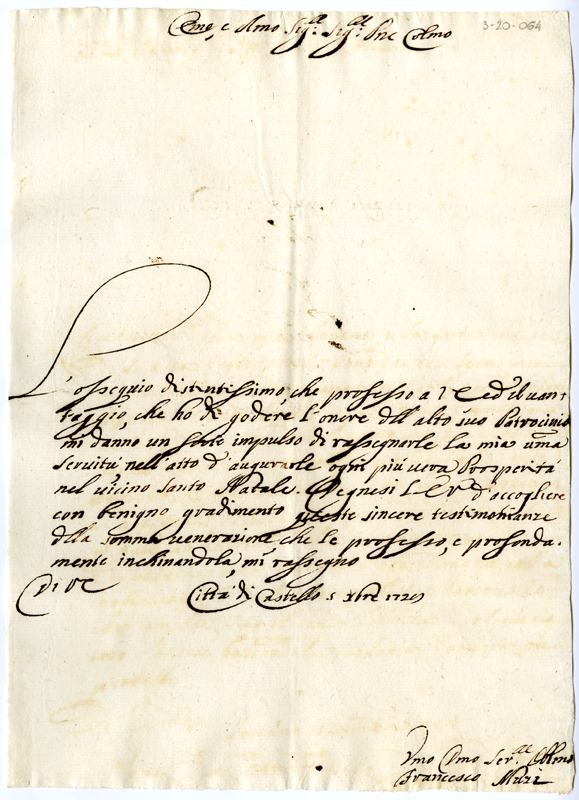 3-20-064
Eme, e Rmo Sig:re Sig:re Pne Colmo
L'ossequio distintissimo, che professo a l'E ed il van-
taggio, che ho di godere l'onore dell alto suo Patrocinio
mi danno un forte impulso di rassegnarle la mia uma
servitù nell'atto d'augurarle ogni più vera Prosperità
nel vicino Santo Natale. Degnesi l'E V d'accogliere
con benigno gradimento queste sincere testimonianze
della somma venerazione che le professo, e profonda-
mente inchinandola, mi rassegno
Di VE
Città di Castello 5 Xbre 1729
Vmo Dmo Ser:re Obl:mo
Francesco